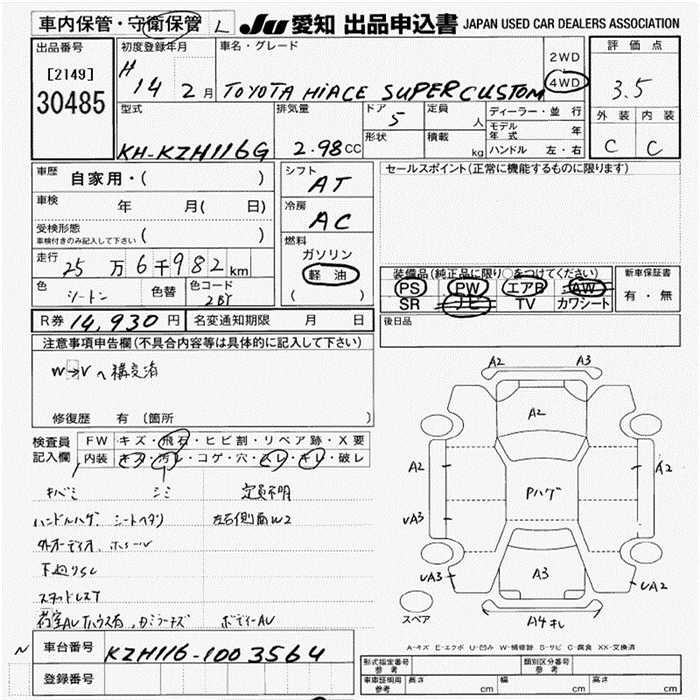 車内保管・守衛保管 L JU 愛知 出品申込書 JAPAN USED CAR DEALERS ASSOCIATION
出品番号 初度登録年月 車名・グレード 2WD 評価点
[2149] H 14 年 2 月 TOYOTA HIACE SUPER CUSTOM 4WD 3.5
30485
型式 排気量 ドア 5 定員 人 ディーラー・並行 外装 内装
モデル年式 年
KH-KZH116G 2.98 CC 形状 積載 kg ハンドル 左・右 C C
車歴 自家用・( ) シフト AT セールスポイント(正常に機能するものに限ります)
車検 年 月( 日) 冷房 AC
受検形態 ( )
車検付きのみ記入して下さい
燃料
ガソリン
走行 25 万 6 千 982 km 軽油 装備品(純正品に限り○をつけてください) 新車保証書
( ) PS PW エアB AW 有・無
色 シートン 色替 色コード 2BT SR ナビ TV カワシート
R券 14,930 円 名変通知期限 月 日 後日品
注意事項申告欄(不具合内容等は具体的に記入して下さい)
W→V へ構変済
修復歴 有 (箇所
検査員 FW キズ・飛石・ヒビ割・リペア跡・X要
記入欄 内装 キズ・汚レ・コゲ・穴・スレ・キレ・破レ
キバミ シミ 定員不明
ハンドルハゲ シートヘタリ 左右側面W2
外オーディオ、ホシール
下廻りSC
スタッドレスT
ボディーAU
A2 A3
A2
A2 Pハゲ A2
UA3 UA3
UA3 A3 UA2
スペア A4キレ
A-キズ E-エクボ U-凹み W-補修跡 S-サビ C-腐食 XX-交換済
N 車台番号 KZH116-1003564
登録番号
形式指定番号 参考 類別区分番号 参考
車庫証明用 参考 長さ cm 幅 cm 高さ cm